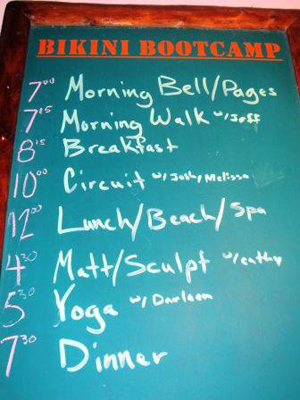 BIKINI BOOTCAMP
7:00 Morning Bell/Pages
7:15 Morning Walk w/Jeff
8:15 Breakfast
10:00 Circuit w/Josh, Melissa
12:00 Lunch/Beach/Spa
4:30 Matt/Sculpt w/cathy
5:30 Yoga w/Darleen
7:30 Dinner